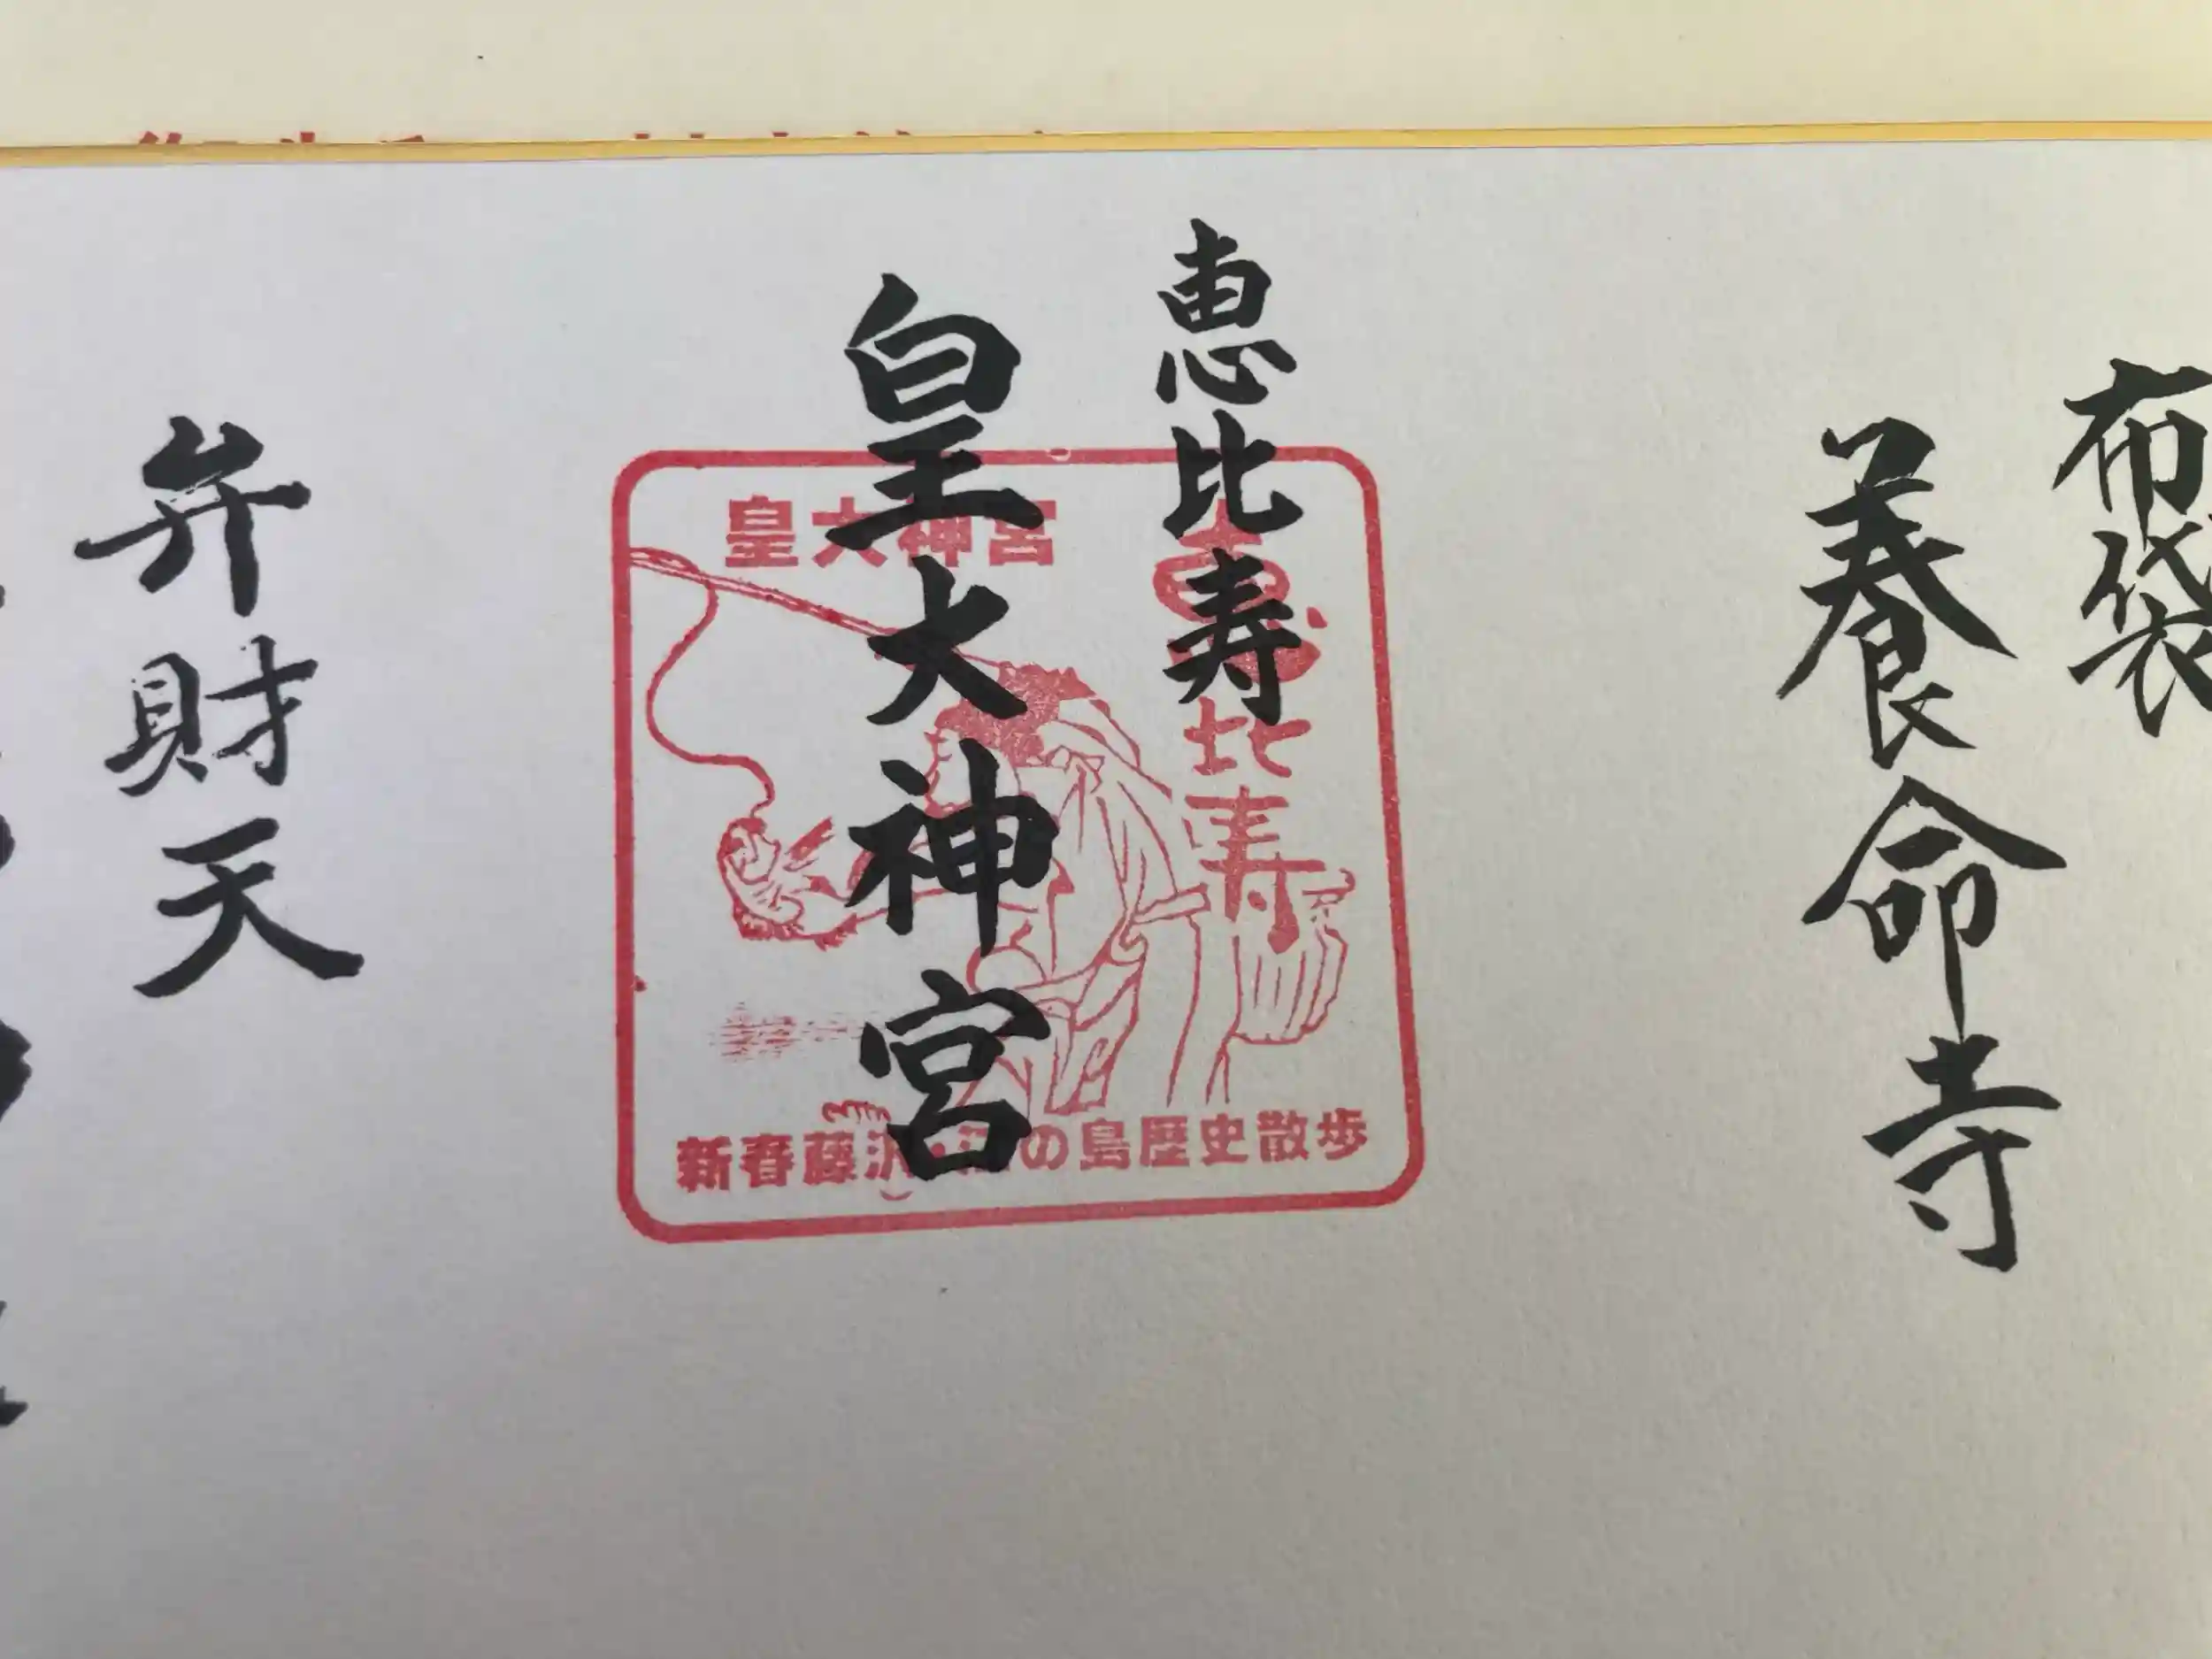 布袋
養命寺
恵比寿
皇大神宮
皇大神宮
恵比寿
新春藤沢・江の島歴史散歩
弁財天